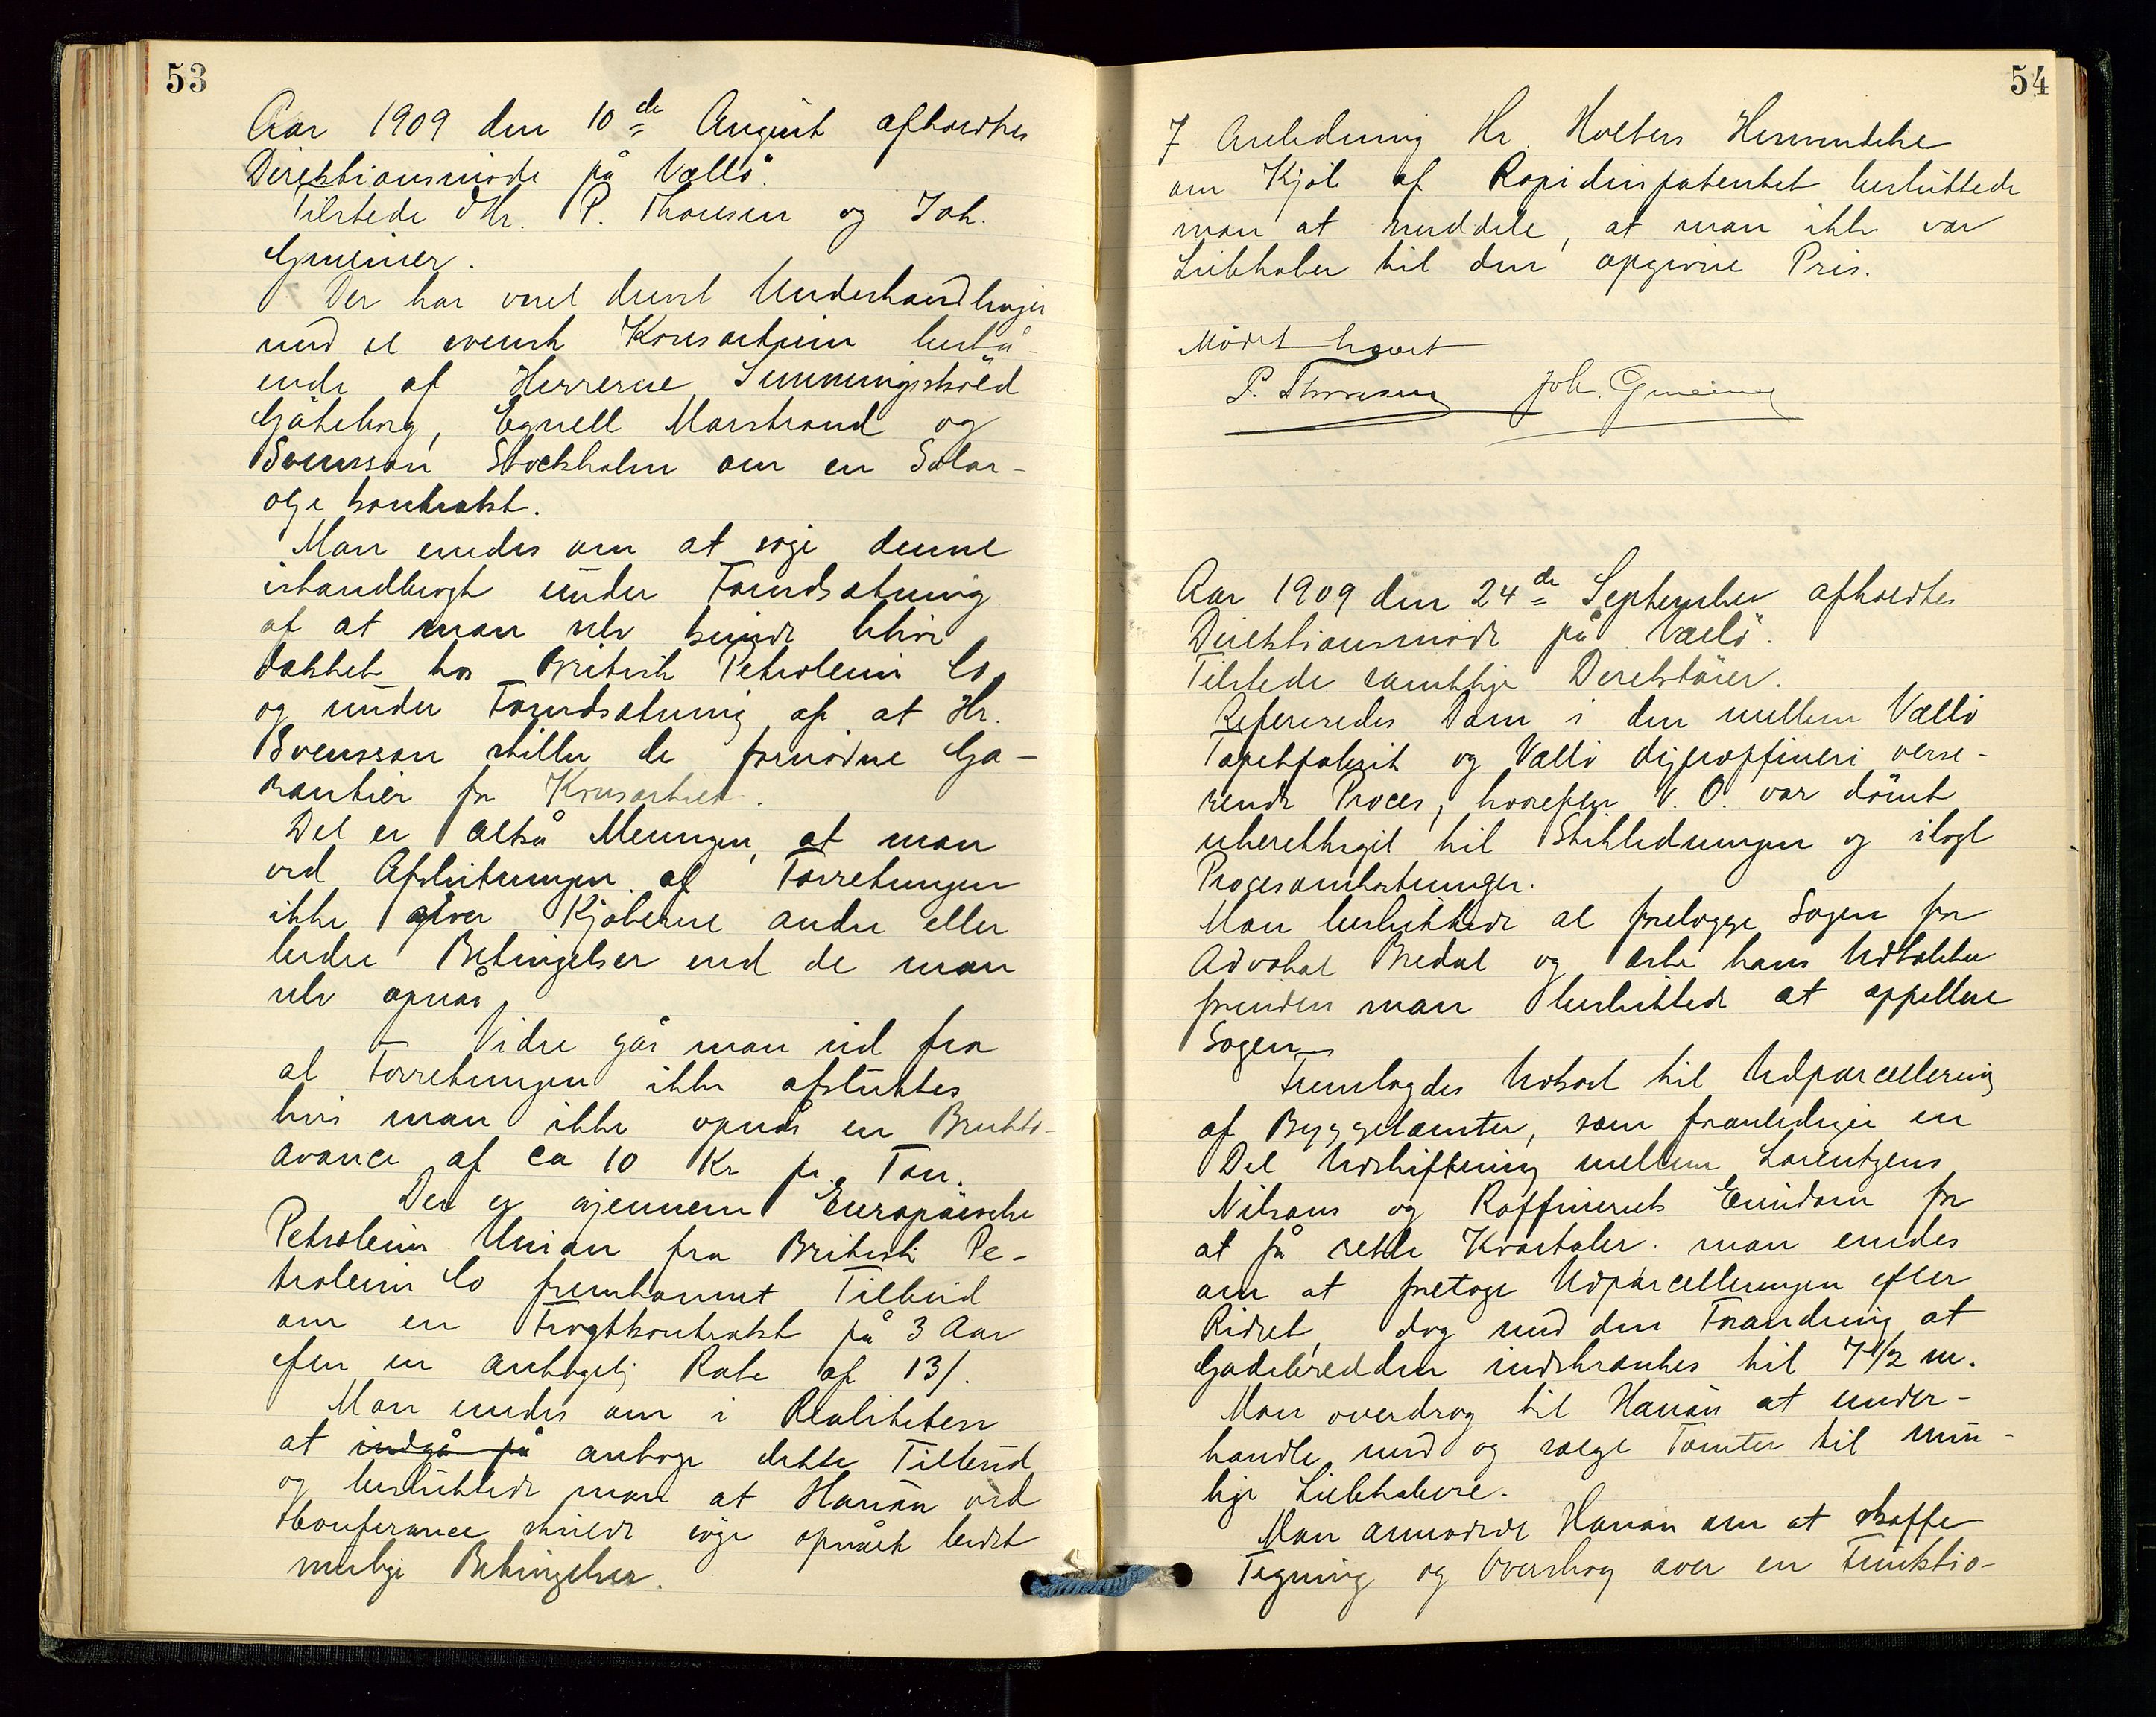 53
Aar 1909 den 10de August afholdtes
Direktionsmöde på Vallö.
Tilstede d'Hr. P. Thoresen og Joh.
Gmeiner.
Der har været drevet Underhandlinger
med et svensk Konsortium bestå-
ende af Herrerne Simmingsköld
Göteborg, Egnell Marstrand og
Svensson Stockholm om en Solar-
olje kontrakt.
Man enedes om at söge denne
istandbragt under Forudsætning
af at man selv kunde blive
dækket hos British Petroleum Co.
og under Forudsætning af at Hr.
Svensson stiller de fornödne Ga-
rantier for Konsortiet.
Det er altså Meningen, at man
ved Afslutningen af Forretningen
ikke giver Kjöberne andre eller
bedre Betingelser end de man
selv opnår.
Videre går man ud fra
at Forretningen ikke afsluttes
hvis man ikke opnår en Brutto-
avance af ca 10 Kr pr. Ton.
Der er gjennem Europäische
Petroleum Union fra British Pe-
troleum Co fremkommet Tilbud
om en Fragtkontrakt på 3 Aar
efter en antagelig Rate af 13/.
Man enedes om i Realiteten
at indgå på antage dette Tilbud
og besluttede man at Hanán ved
Konferance skulde söge opnået bedst
mulige Betingelser.
54
I Anledning Hr. Holters Henvendelse
om Kjöb af Rapidinpatentet besluttede
man at meddele, at man ikke var
Liebhaber til den opgivne Pris.
Mödet hævet
P. Thoresen Joh. Gmeiner
Aar 1909 den 24de September afholdtes
Direktionsmöde på Vallö.
Tilstede samtlige Direktörer.
Refereredes Dom i den mellem Vallö
Tapetfabrik og Vallö Oljeraffineri verse-
rende Proces, hvorefter V. O. var dömt
uberettiget til Stikledningen og ilagt
Procesomkostninger.
Man besluttede at forelægge Sagen for
Advokat Bredal og æske hans Udtalelse
forinden man besluttede at appellere
Sagen
Fremlagdes Udkast til Udparcellering
af Byggetomter, som foranlediger en
Del Udskiftning mellem Lorentzens
Nilsens og Raffineriets Eiendom for
at få rette Kvartaler. man enedes
om at foretage Udparcelleringen efter
Ridset, dog med den Forandring at
Gadebredden indskrænkes til 7 1/2 m.
Man overdrog til Hanán at under-
handle med og sælge Tomter til mu-
lige Liebhabere.
Man anmodede Hanán om at skaffe
Tegning og Overslag over en Funktio-